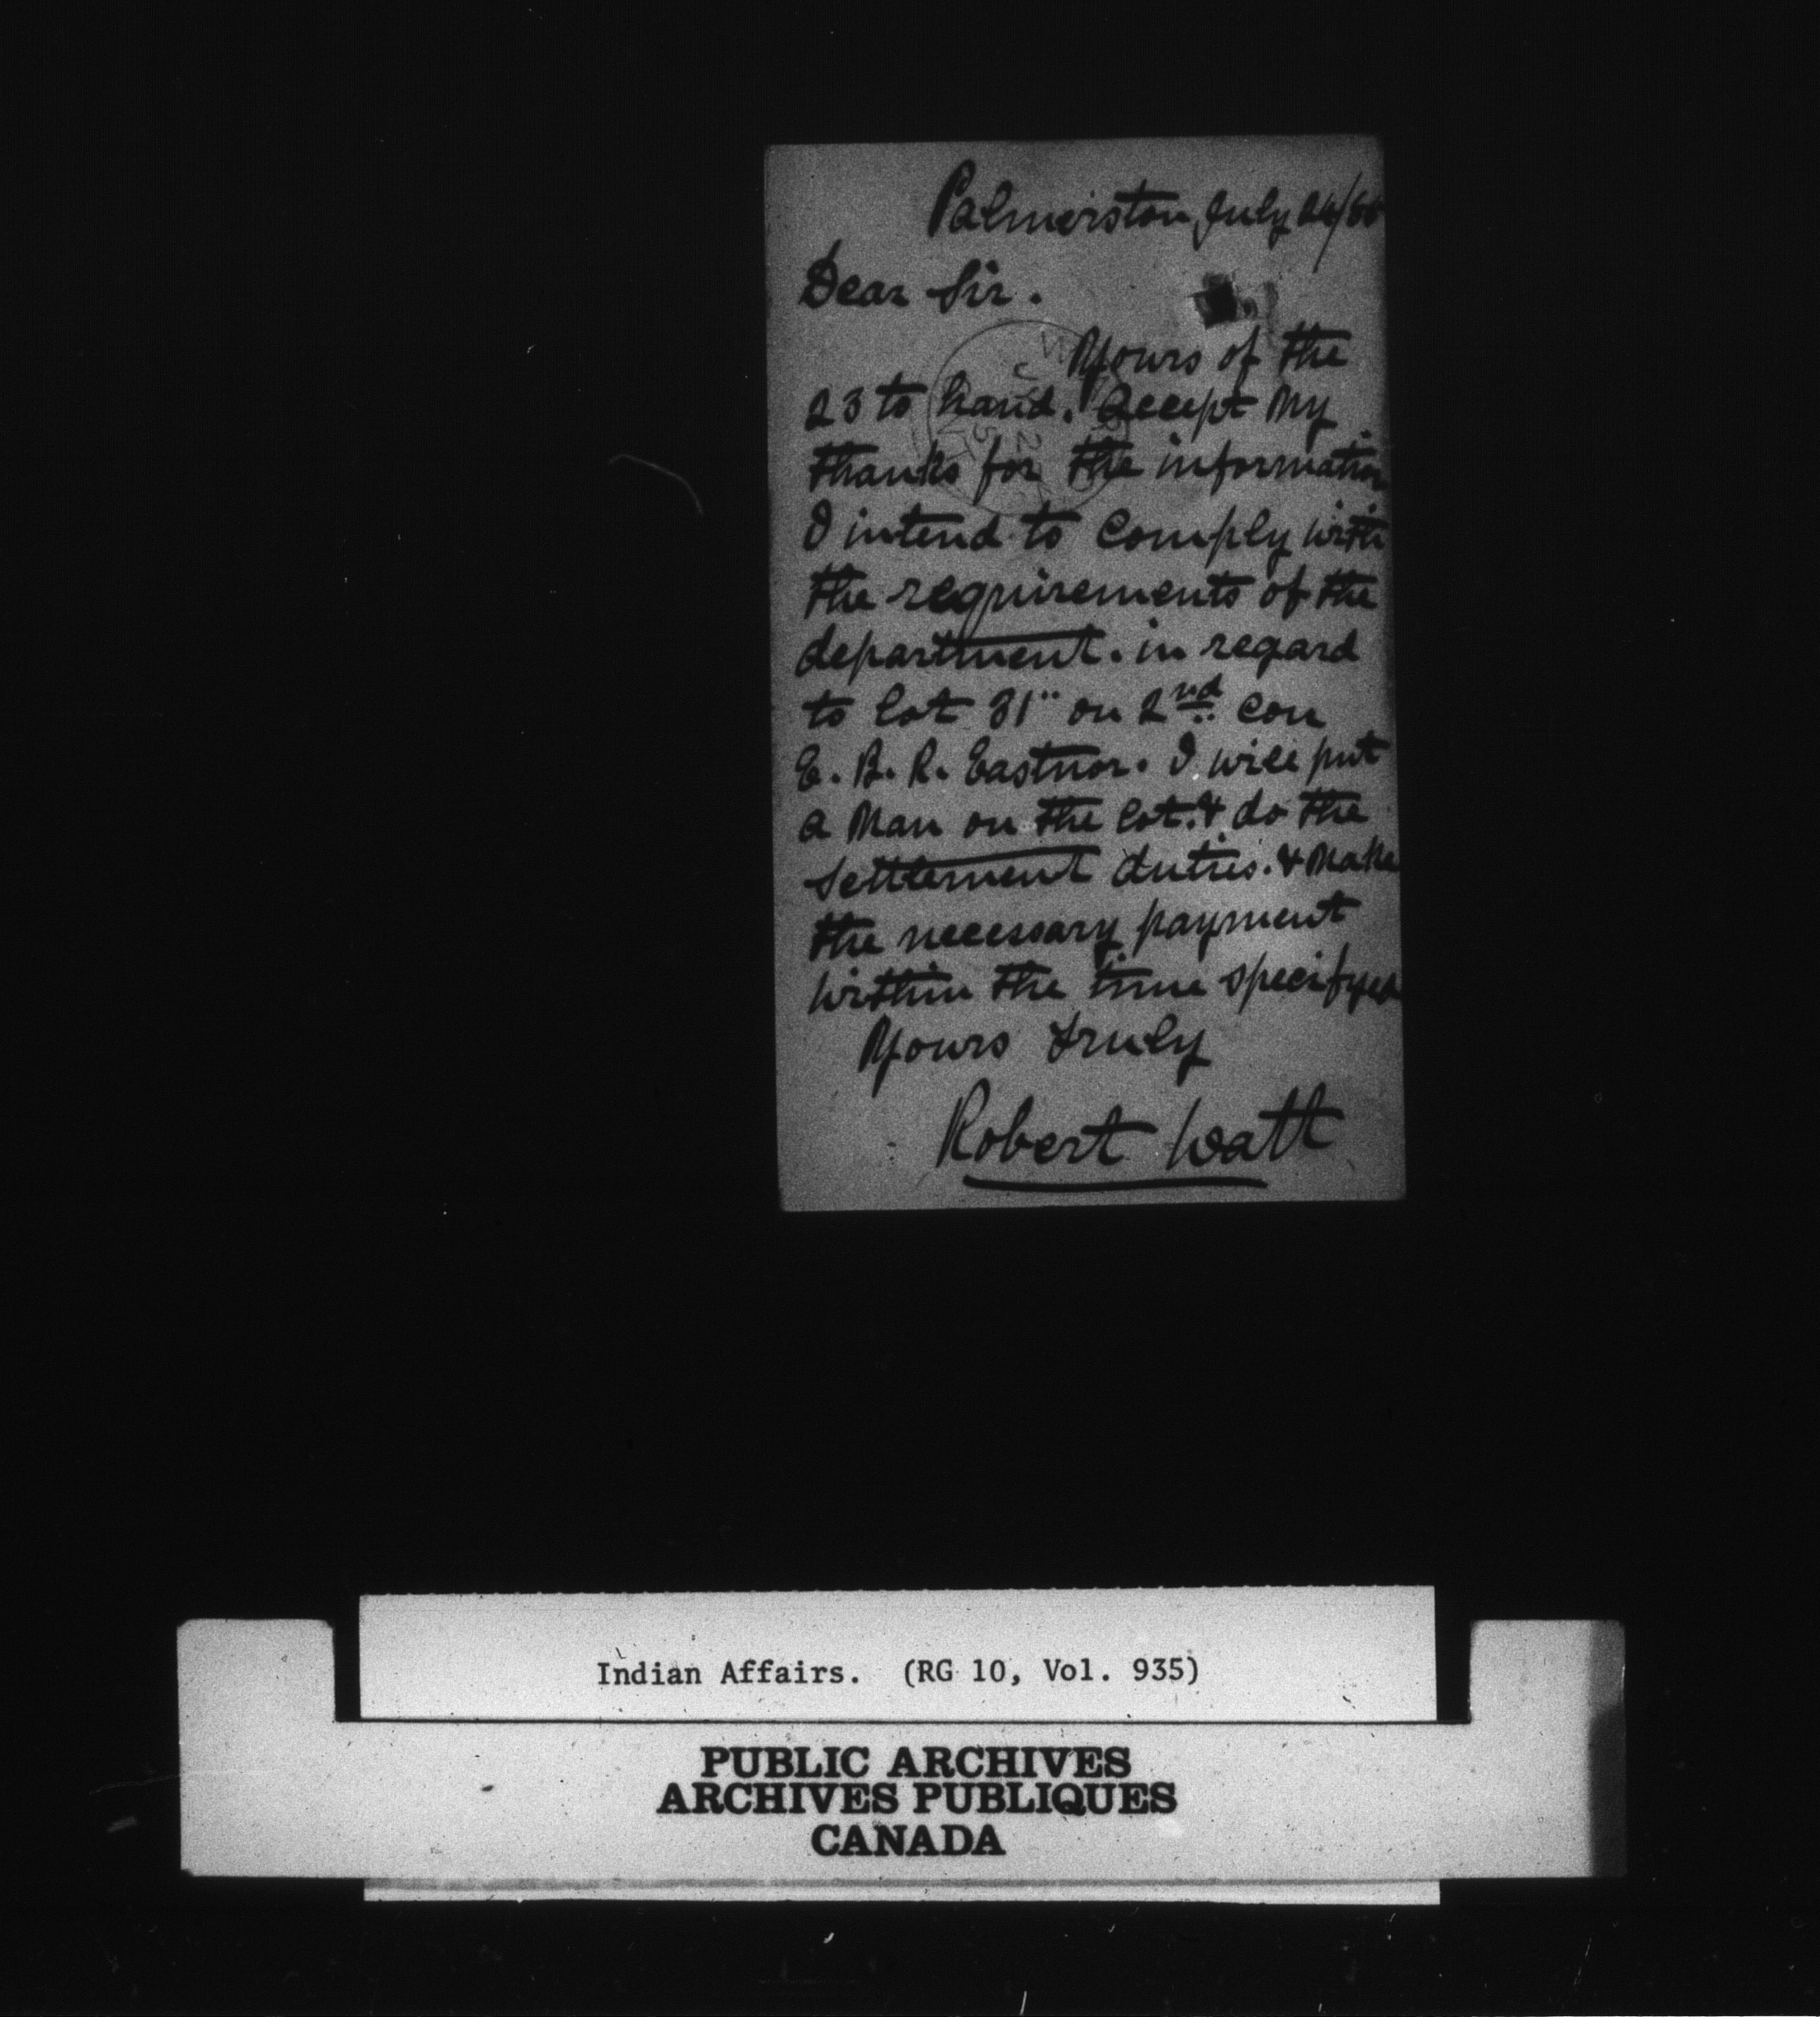 Palmerston July 24/86
Dear Sir.
Yours of the
23 to hand. Accept My
thanks for the information
I intend to comply with
the requirements of the
department. in regard
to lot 31" on 2nd con
E. B. R. Eastnor. I will put
a Man on the lot. & do the
settlement duties. & Make
the necessary payment
within the time specifyed
Yours truly
Robert Watt
Indian Affairs. (RG 10, Vol. 935)
PUBLIC ARCHIVES
ARCHIVES PUBLIQUES
CANADA